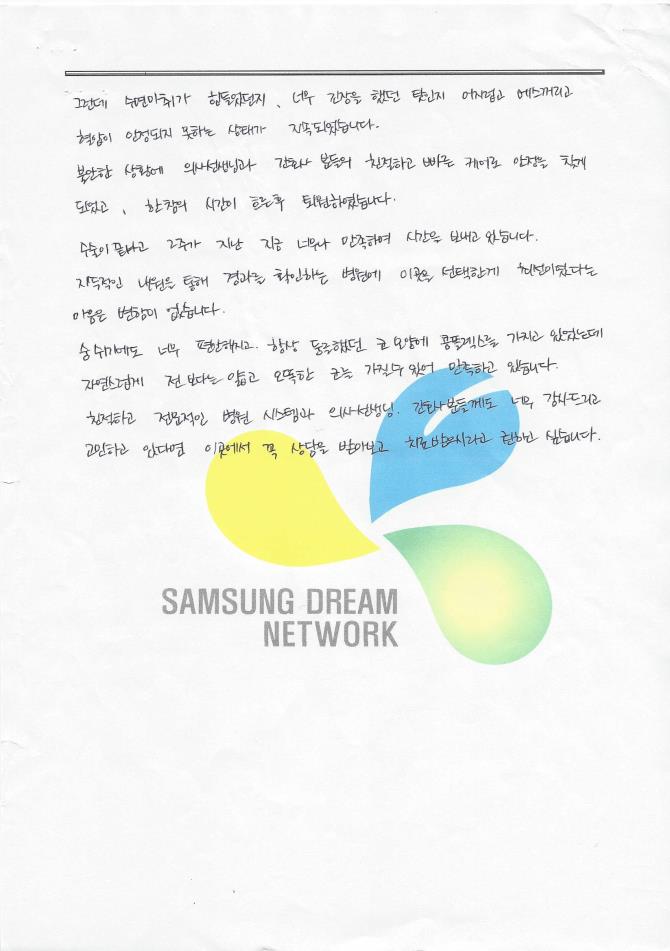 그런데 수면마취가 힘들었던지, 너무 긴장을 했던 탓인지 어지럽고 메스꺼리고
혈압이 안정되지 못하는 상태가 지속되었습니다.
불안한 상황에 의사선생님과 간호사 분들의 친절하고 빠른 케어로 안정을 찾게
되었고, 한참의 시간이 흐른후 퇴원하였습니다.
수술이 끝나고 2주가 지난 지금 너무나 만족하며 시간을 보내고 있습니다.
지속적인 내원을 통해 경과를 확인하는 병원에 이곳을 선택한게 최선이었다는
마음은 변함이 없습니다.
숨쉬기에도 너무 편안해지고. 항상 뭉툭했던 코 모양에 콤플렉스를 가지고 있었는데
자연스럽게 전 보다는 얇고 오똑한 코를 가질수 있어 만족하고 있습니다.
친절하고 전문적인 병원 시스템과 의사선생님. 간호사분들께도 너무 감사드리고
고민하고 있다면 이곳에서 꼭 상담을 받아보고 치료받으시라고 권하고 싶습니다.
SAMSUNG DREAM
NETWORK